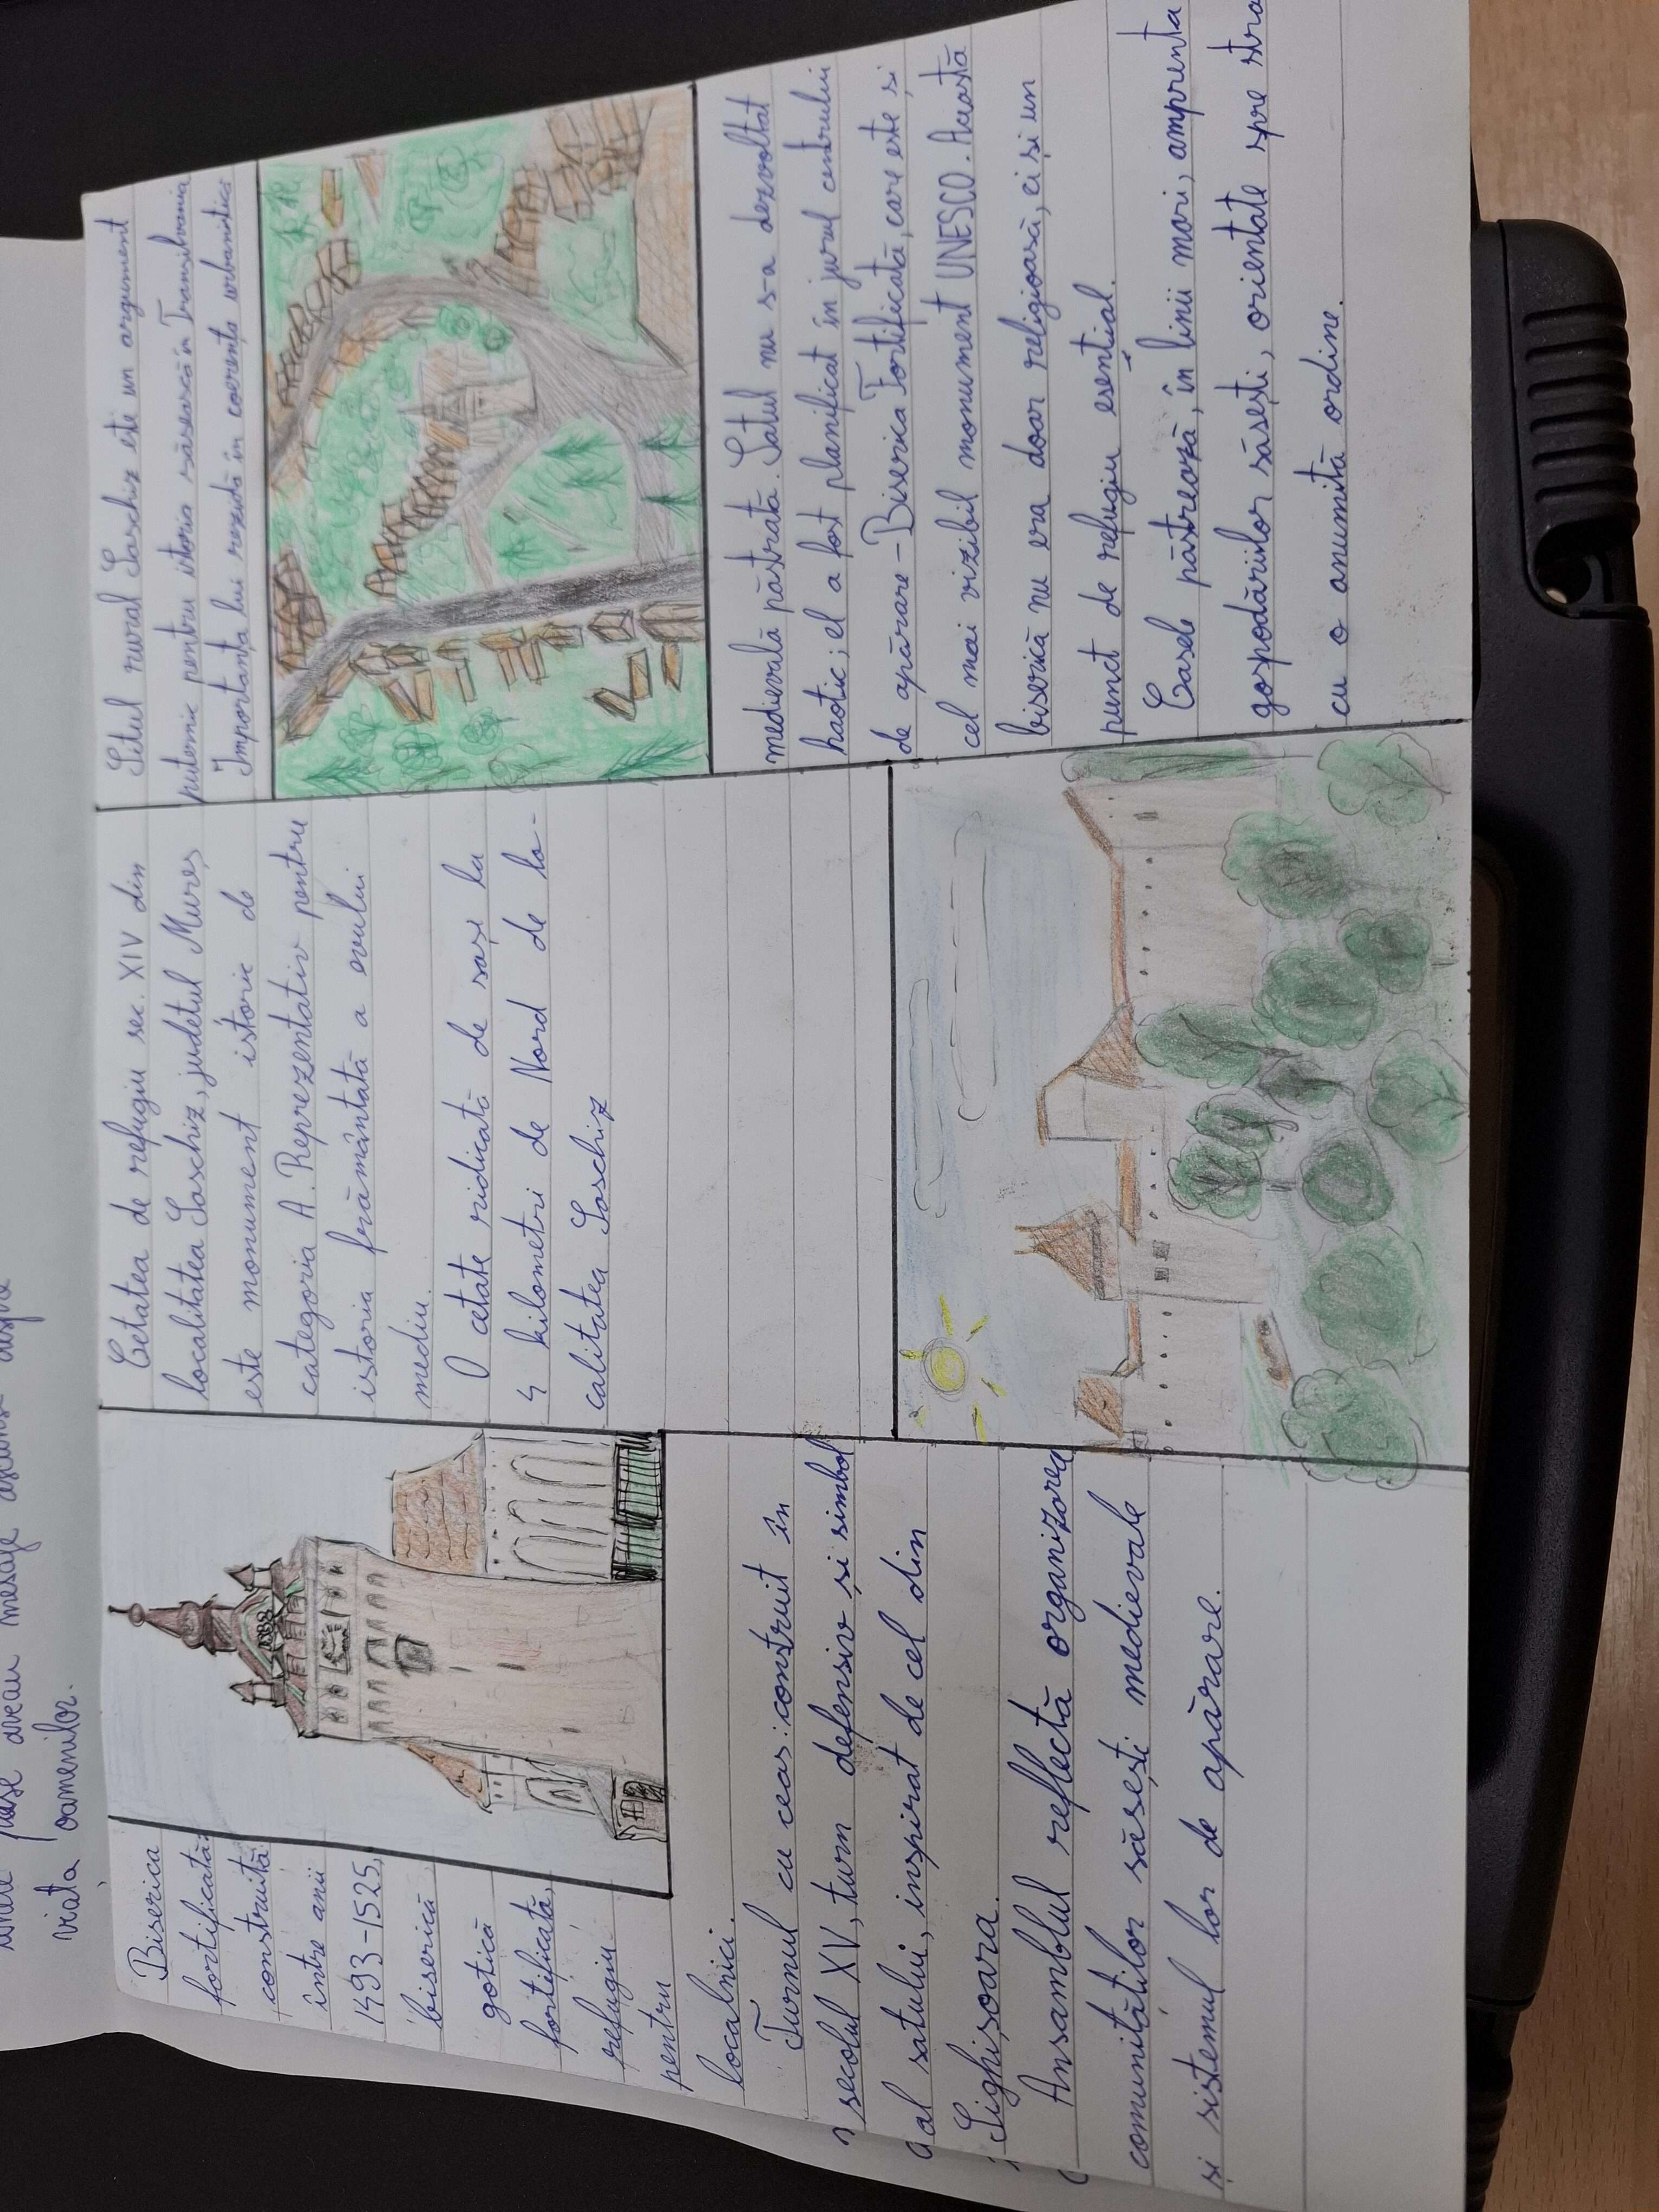 viața oamenilor.
Biserica
fortificată:
construită
între anii
1493-1525,
biserică
gotică
fortificată,
refugiu
pentru
localnici.
Turnul cu ceas: construit în
secolul XV, turn defensiv și simbol
al satului, inspirat de cel din
Sighișoara.
Ansamblul reflectă organizarea
comunităților săsești medievale
și sistemul lor de apărare.
1488
Cetatea de refugiu sec. XIV din
localitatea Saschiz, județul Mureș
este monument istoric de
categoria A. Reprezentativ pentru
istoria frământată a evului
mediu.
O cetate ridicată de sași la
4 kilometri de Nord de lo-
calitatea Saschiz
Situl rural Saschiz este un argument
puternic pentru istoria săsească în Transilvania
Importanța lui rezidă în coerența urbanistică
medievală păstrată. Satul nu s-a dezvoltat
haotic; el a fost planificat în jurul centrului
de apărare - Biserica Fortificată, care este și
cel mai vizibil monument UNESCO. Această
biserică nu era doar religioasă, ci și un
punct de refugiu esențial.
Casele păstrează, în linii mari, amprenta
gospodăriilor săsești, orientate spre stra
cu o anumită ordine.